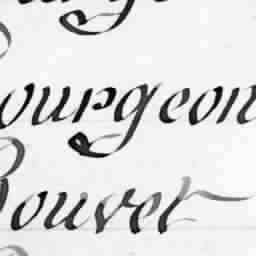 ourgeon
Bouvet